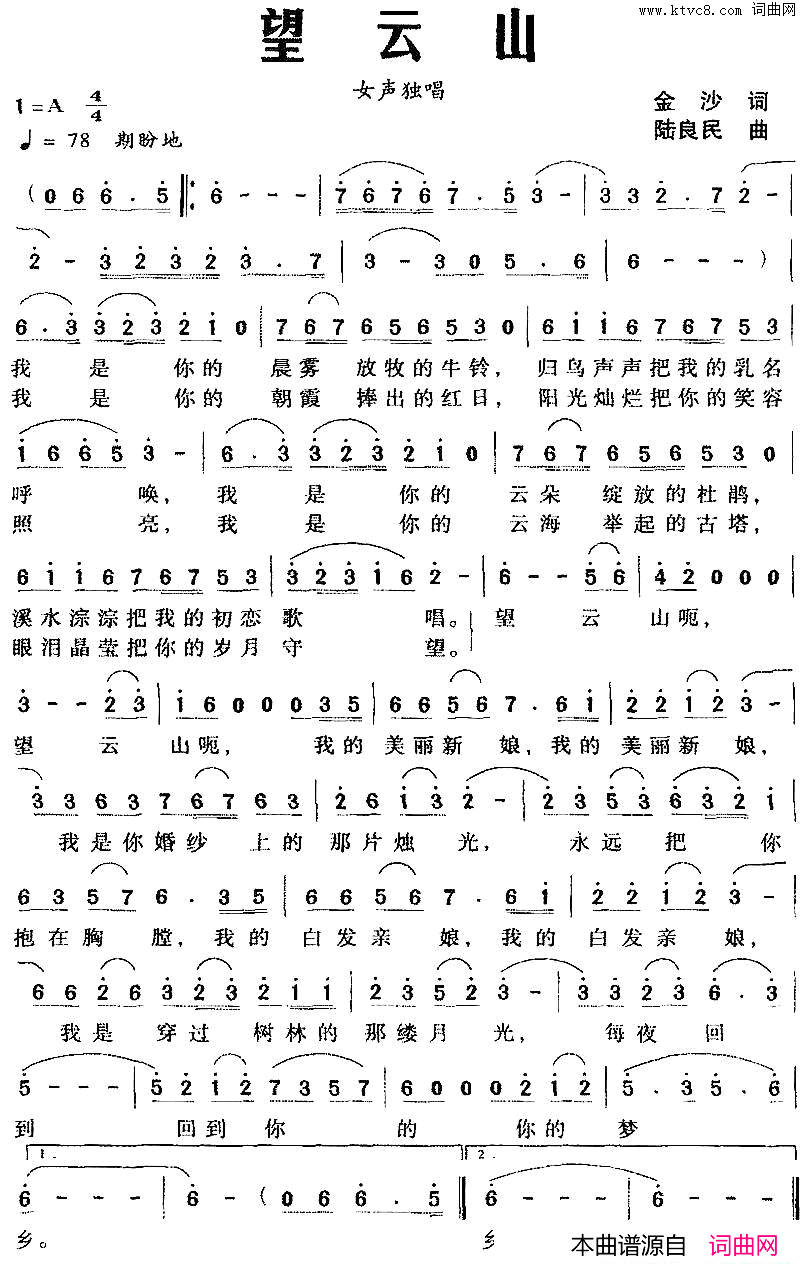 www.ktvc8.com 词曲网
望云山
女声独唱
1=A 4/4
金沙 词
♩= 78 期盼地
陆良民 曲
(0 6 6 . 5 6 - - - 7 6 7 6 7 . 5 3 - 3 3 2 . 7 2 -
2 - 3 2 3 2 3 . 7 3 - 3 0 5 . 6 6 - - - )
6 . 3 3 2 3 2 1 0 7 6 7 6 5 6 5 3 0 6 1 1 6 7 6 7 5 3
我是你的晨雾放牧的牛铃，归鸟声声把我的乳名
我是你的朝霞捧出的红日，阳光灿烂把你的笑容
1 6 6 5 3 - 6 . 3 3 2 3 2 1 0 7 6 7 6 5 6 5 3 0
呼唤，我是你的云朵绽放的杜鹃，
照亮，我是你的云海举起的古塔，
6 1 1 6 7 6 7 5 3 3 2 3 1 6 2 - 6 - - 5 6 4 2 0 0 0
溪水淙淙把我的初恋歌唱。望云山呃，
眼泪晶莹把你的岁月守望。
3 - - 2 3 1 6 0 0 0 3 5 6 6 5 6 7 . 6 1 2 2 1 2 3 -
望云山呃，我的美丽新娘，我的美丽新娘，
3 3 6 3 7 6 7 6 3 2 6 1 3 2 - 2 3 5 3 6 3 2 1
我是你婚纱上的那片烛光，永远把你
6 3 5 7 6 . 3 5 6 6 5 6 7 . 6 1 2 2 1 2 3 -
抱在胸膛，我的白发亲娘，我的白发亲娘，
6 6 2 6 3 2 3 2 1 1 2 3 5 2 3 - 3 3 2 3 6 . 3
我是穿过树林的那缕月光，每夜回
5 - - - 5 2 1 2 7 3 5 7 6 0 0 0 0 2 1 2 5 . 3 5 . 6
到回到你的你的梦
1. 2.
6 - - - 6 - (0 6 6 6 . 5 6 - - - 6 - - -
乡。乡
本曲谱源自 词曲网